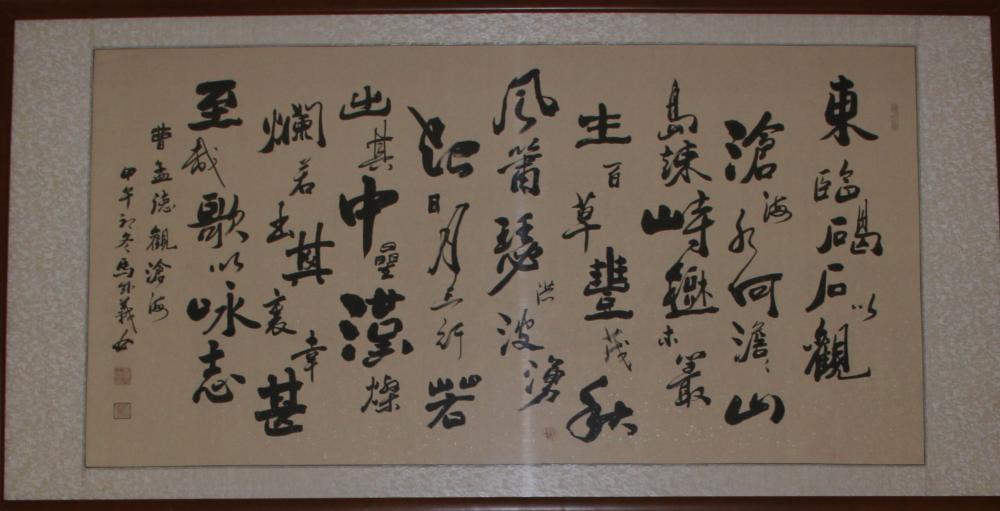 東臨碣石以觀
滄海水何澹〻山
島竦峙樹木叢
生百草豐茂秋
風蕭瑟洪波湧
起日月之行若
出其中星漢燦
爛若出其裏幸甚
至哉歌以咏志
曹孟德觀滄海
甲午初冬馬